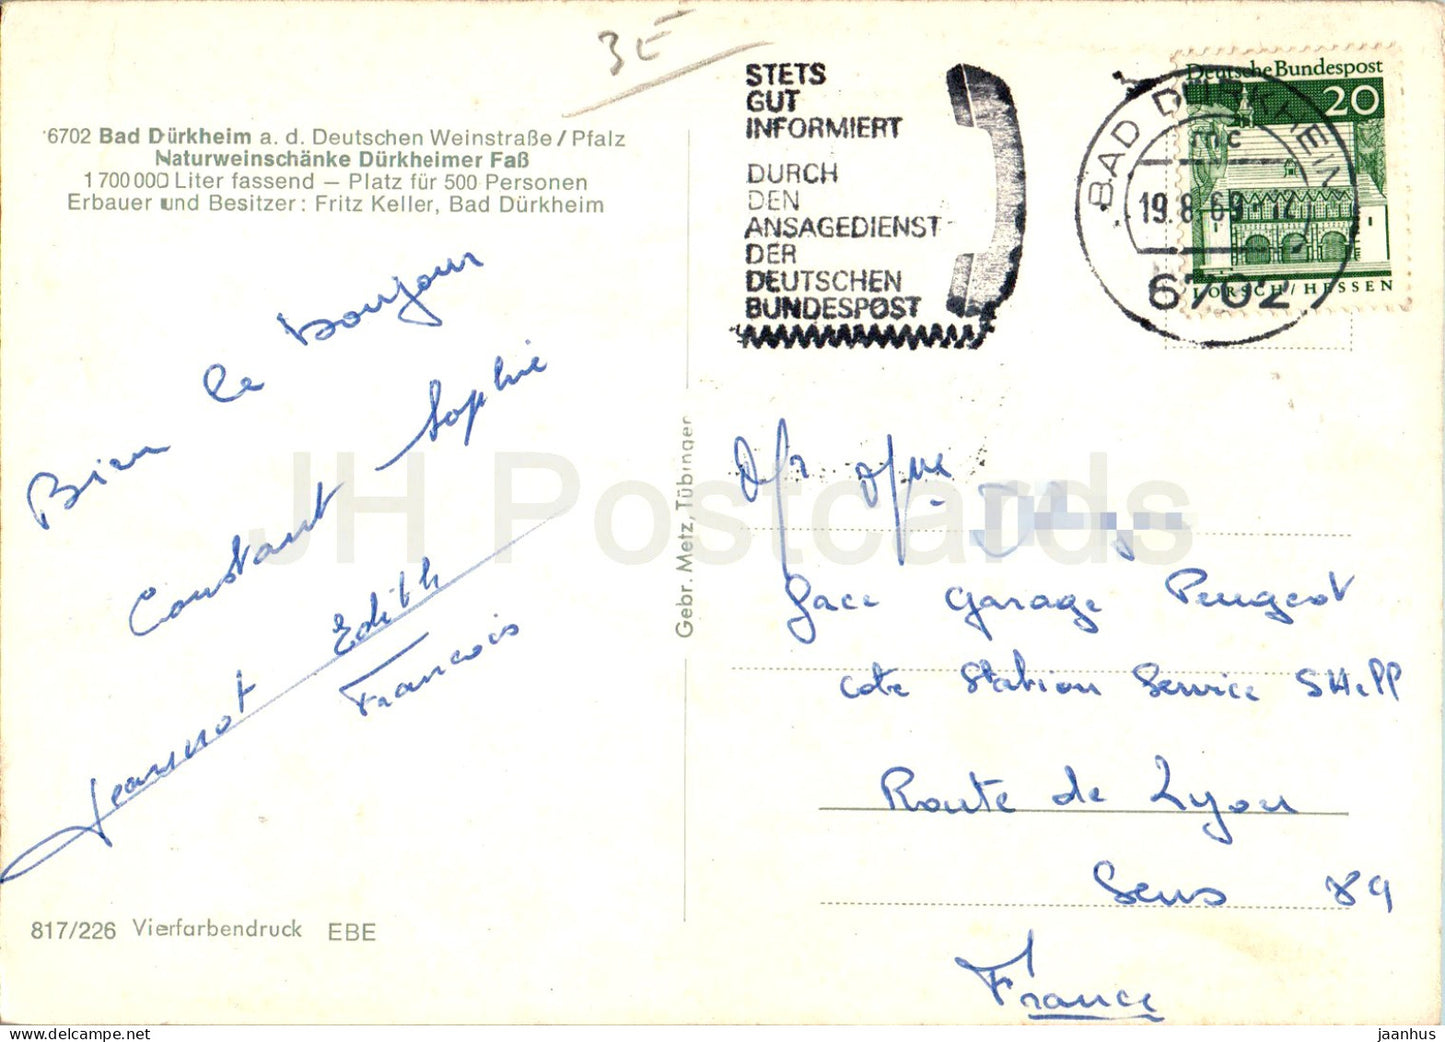 3E
6702 Bad Dürkheim a. d. Deutschen Weinstraße/Pfalz
Naturweinschänke Dürkheimer Faß
1 700 000 Liter fassend — Platz für 500 Personen
Erbauer und Besitzer: Fritz Keller, Bad Dürkheim
Bien le bonjour
Constant Sophie
Jeannot Edith
Francois
817/226 Vierfarbendruck EBE
Gebr. Metz, Tübingen
STETS
GUT
INFORMIERT
DURCH
DEN
ANSAGEDIENST
DER
DEUTSCHEN
BUNDESPOST
BAD DÜRKHEIM
19.8.69
6702
Deutsche Bundespost
20
LORSCH/HESSEN
face garage Peugeot
cote Station Service SHell
Route de Lyon
Sens 89
France
JH Postcards
jaanhus